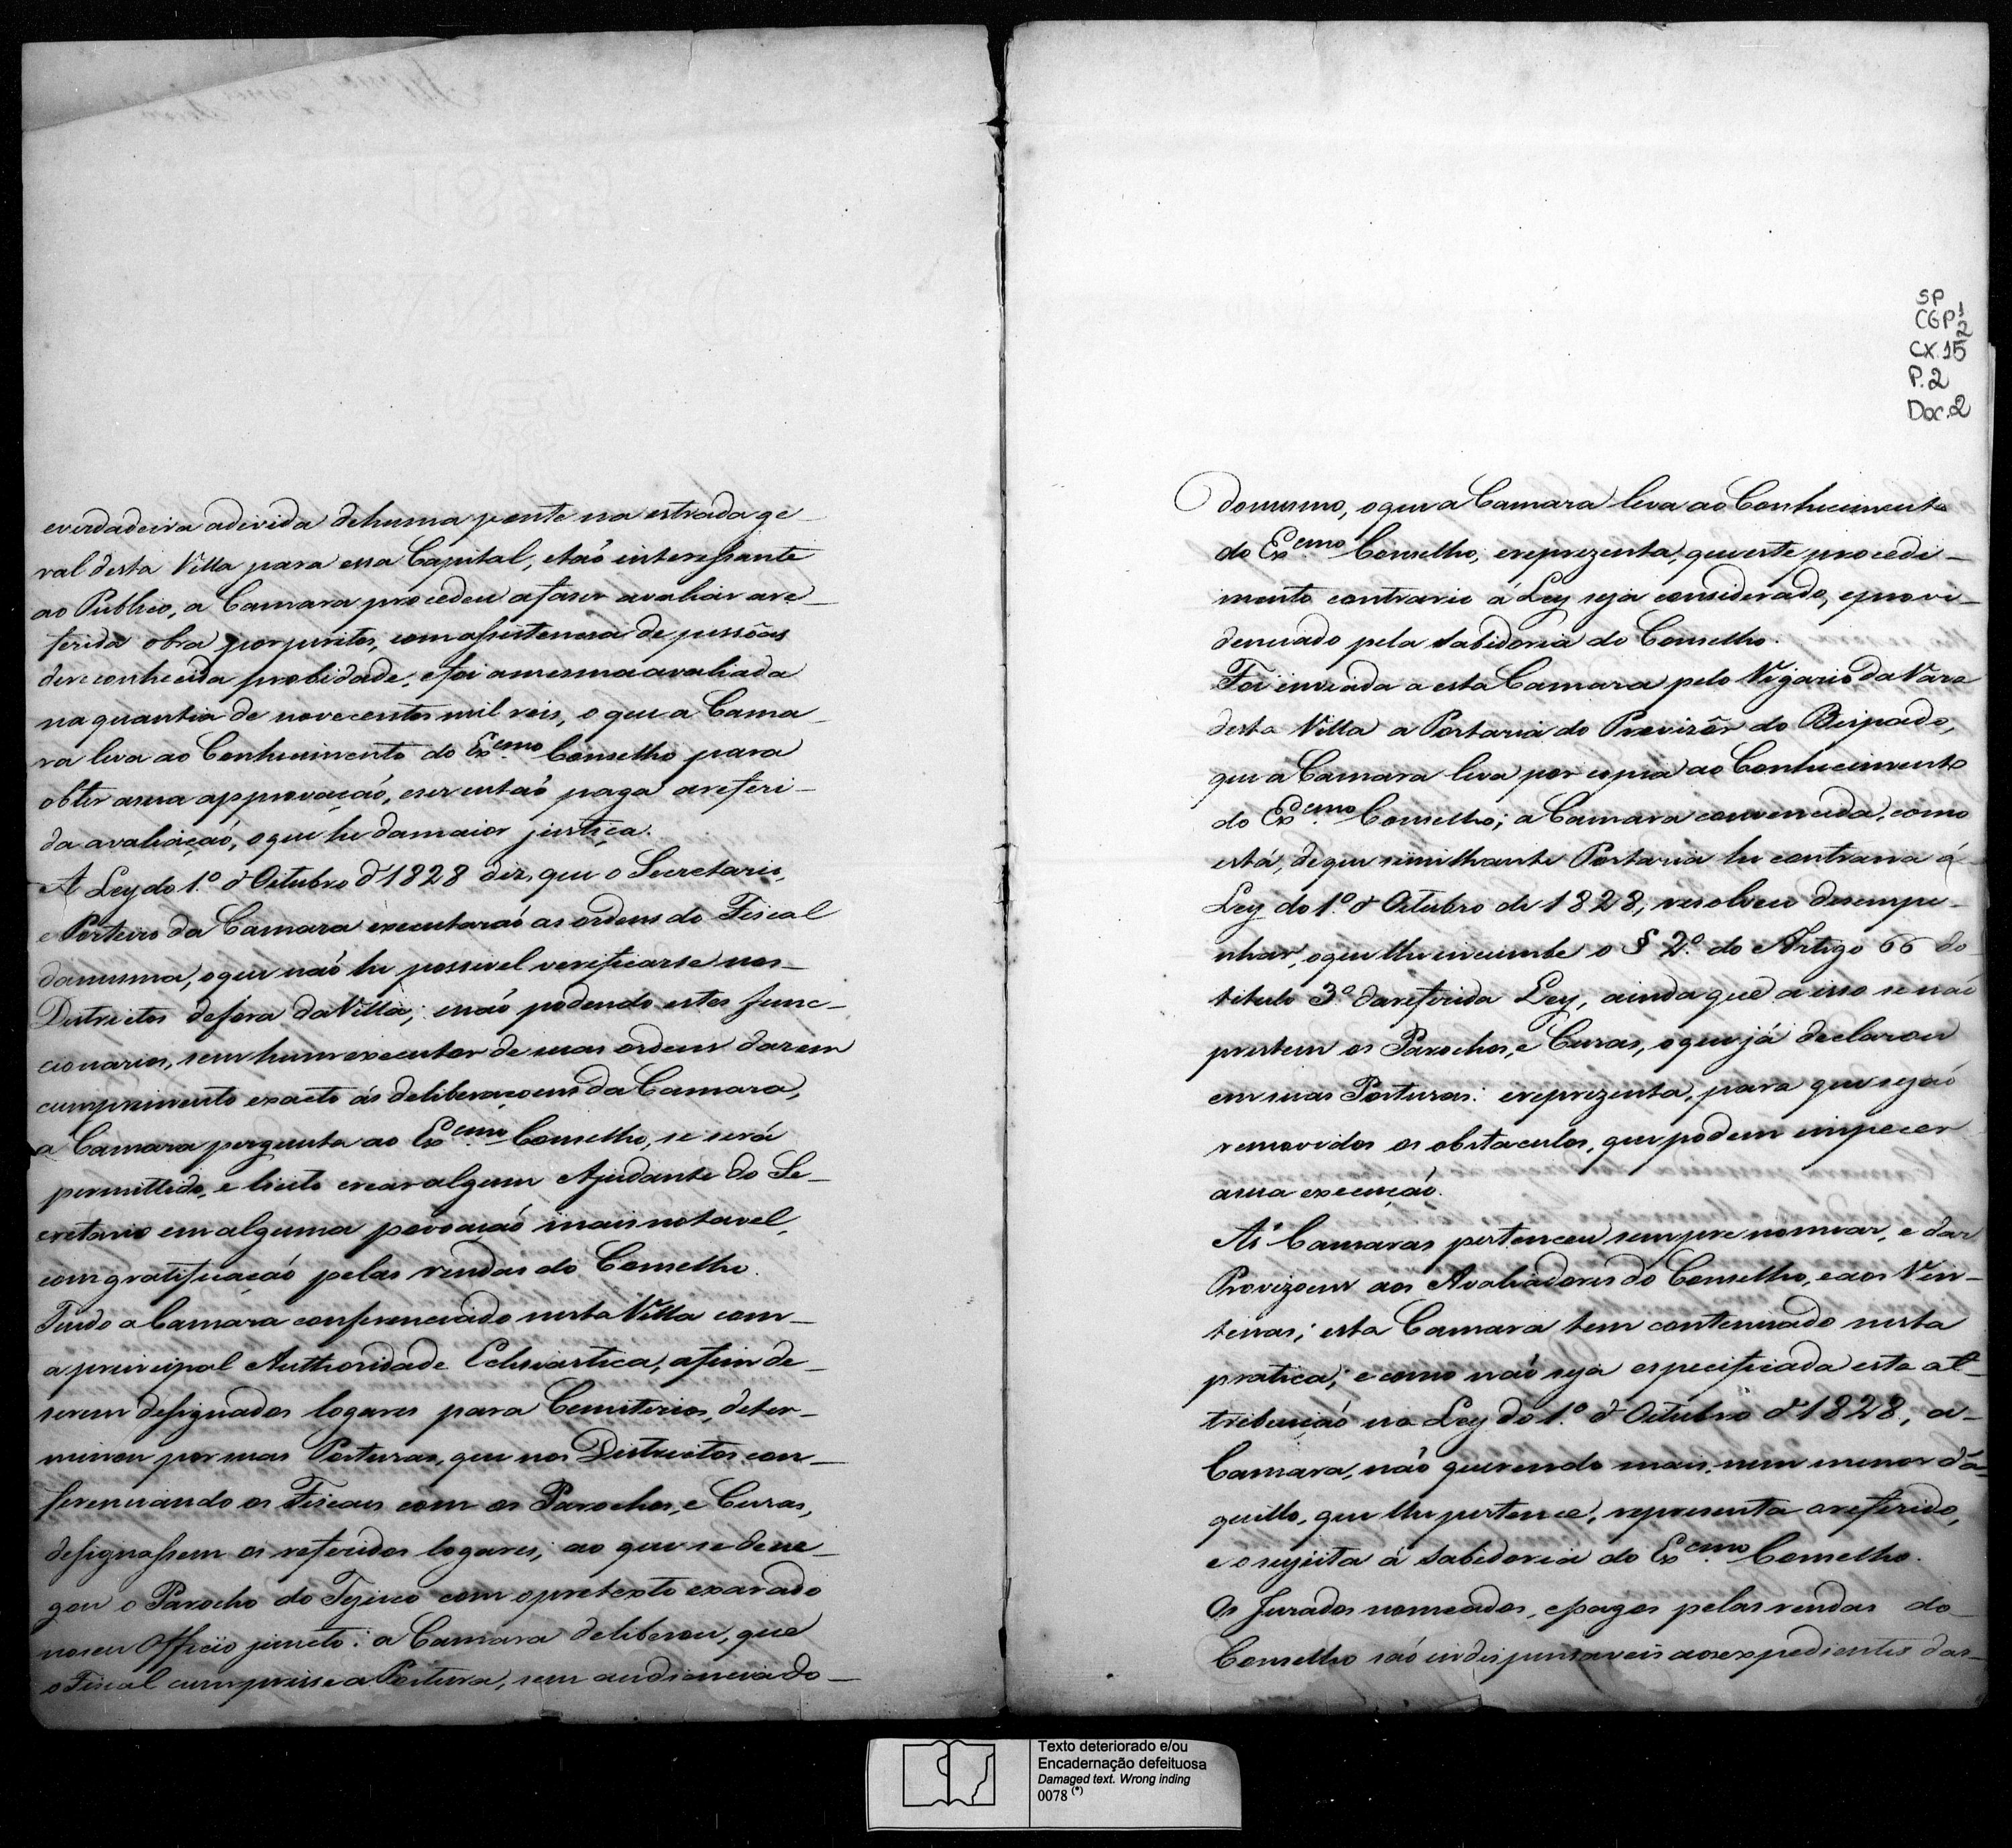 everdadeira adivida dehuma ponte na estrada ge-
ral desta Villa para essa Capital, etaõ interessante
ao Publico, a Camara procedeu afaser avaliar are-
ferida obra por peritos, comassistencia de pessôas
dereconhecida probidade, efoi amesma avaliada
na quantia de novecentos mil reis, o que a Cama-
ra leva ao Conhecimento do Ex.cmo Conselho para
obter asua approvaçaõ, eser entaõ paga areferi-
da avaliaçaõ, oque he damaior justiça.
A Ley do 1.º d'Oitubro d'1828 diz, que o Secretario,
e Porteiro da Camara executaraõ as ordens do Fiscal
damesma, oque naõ he possivel verificarse nos-
Districtos defora daVilla; enaõ podendo estes func-
cionarios, sem hum executor de suas ordens darem
cumprimento exacto ás deliberaçoens da Camara,
a Camara pergunta ao Ex.cmo Conselho, se será
permittido, e licito crear algum Ajudante do Se-
cretario em alguma povoaçaõ mais notavel,
com gratificaçaõ pelas rendas do Conselho.
Tendo a Camara conferenciado nesta Villa com-
a principal Authoridade Eclesiastica, afim de-
serem designados logares para Cemiterios, deter-
minou por suas Posturas, que nos Districtos con-
ferenciando os Fiscaes com os Parochos, e Curas,
designassem os referidos logares; ao que se dene-
gou o Parocho do Tejuco com opretexto exarado
noseu Officio juncto: a Camara deliberou, que
o Fiscal cumprisse a Postura, sem audiencia do-
SP
CGP 1
2
CX.15
P.2
Doc.2
domesmo, oque a Camara leva ao Conhecimento
do Ex.cmo Conselho, ereprezenta, que este procedi-
mento contrario á Ley seja considerado, eprovi-
denciado pela sabidoria do Conselho.
Foi inviada a esta Camara pelo Vigario da Vara
desta Villa a Portaria do Provizôr do Bispado,
que a Camara leva por copia ao Conhecimento
do Ex.cmo Conselho; a Camara convencida, como
está, de que similhante Portaria he contraria á
Ley do 1.º d'Oitubro de 1828, resolveu desempe-
nhar, oque lhe incumbe o § 2.º do Artigo 66 do
titulo 3.º dareferida Ley, ainda que a isso se naõ
prestem os Parochos, e Curas, oque já declarou
em suas Posturas: ereprezenta, para que sejaõ
removidos os obstaculos, que podem impecer
asua execuçaõ.
Ás Camaras pertenceu sempre nomear, e dar
Provizoens aos Avaliadores do Conselho, eaos Vin-
tenas; esta Camara tem continuado nesta
pratica; e como naõ seja especificada esta at-
tribuiçaõ na Ley do 1.º d'Oitubro d'1828, a-
Camara, naõ querendo mais, nem menor da-
quillo, que lhe pertence, representa oreferido,
e o sugeita á sabidoria do Ex.cmo Conselho.
Os Jurados nomeados, epagos pelas rendas do-
Conselho saõ indispensaveis aosexpedientes das-
Texto deteriorado e/ou
Encadernação defeituosa
Damaged text. Wrong inding
0078 (*)